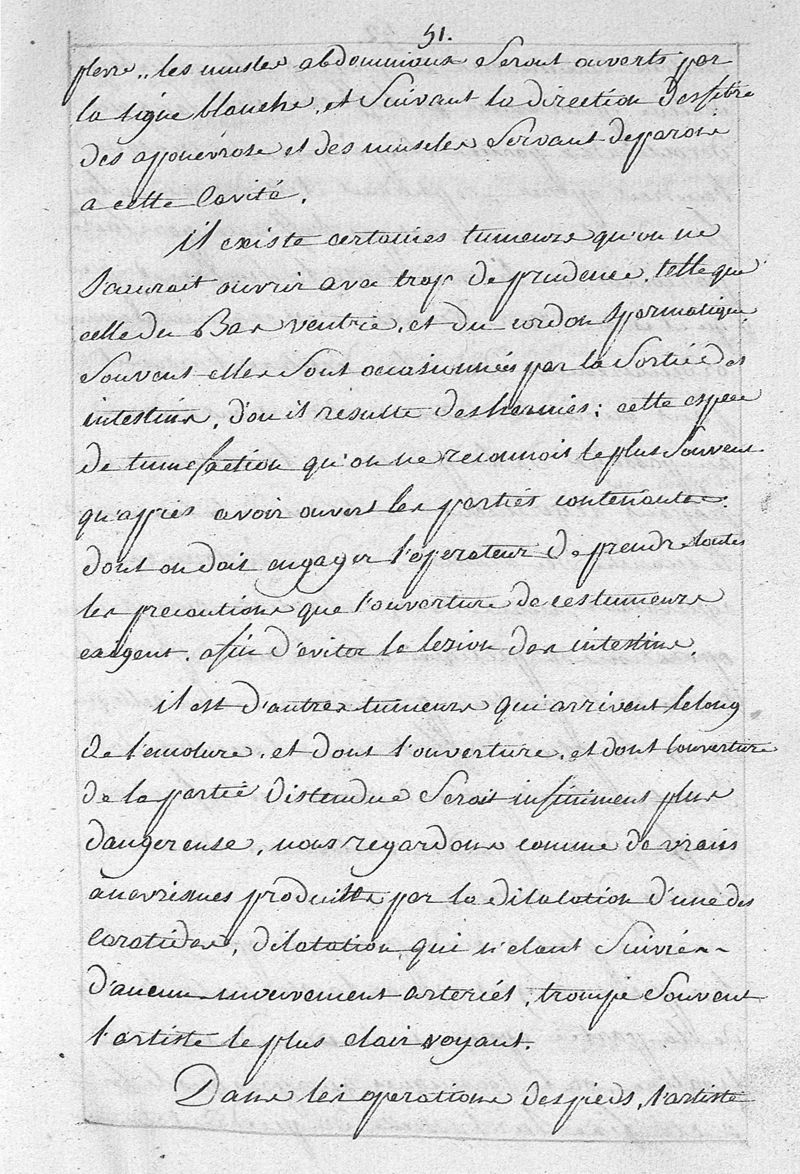 51.
plevre, les muscles abdominaux seront ouverts par
la ligne blanche, et suivant la direction des fibre
des aponévrose et des muscles servant de parois
a cette Cavité.
il existe certaines tumeurs qu'on ne
saurait ouvrir avec trop de prudence, telle que
celle du Bas ventrie, et du cordon spermatique
souvent elles sont occasionnées par la sortie des
intestins, d'ou il résulte des hernies; cette espece
de tumefaction qu'on ne reconnois le plus souvent
qu'après avoir ouvert les parties contenantes.
dont on doit engager l'operateur de prendre toutes
les precautions que l'ouverture de ces tumeurs
exigent. afin d'eviter la lezion des intestins.
il est d'autres tumeurs qui arrivent le long
de l'encolure, et dont l'ouverture, et dont l'ouverture
de la partie distendue serait infiniment plus
dangereuse, nous regardons comme de vrais
anevrismes produitte par la dilatation d'une des
Carotides, dilatation, qui n'etant suivie
d'aucun mouvement arteriel, trompe souvent
l'artiste le plus clair voyant.
Dans les operations des pieds, l'artiste